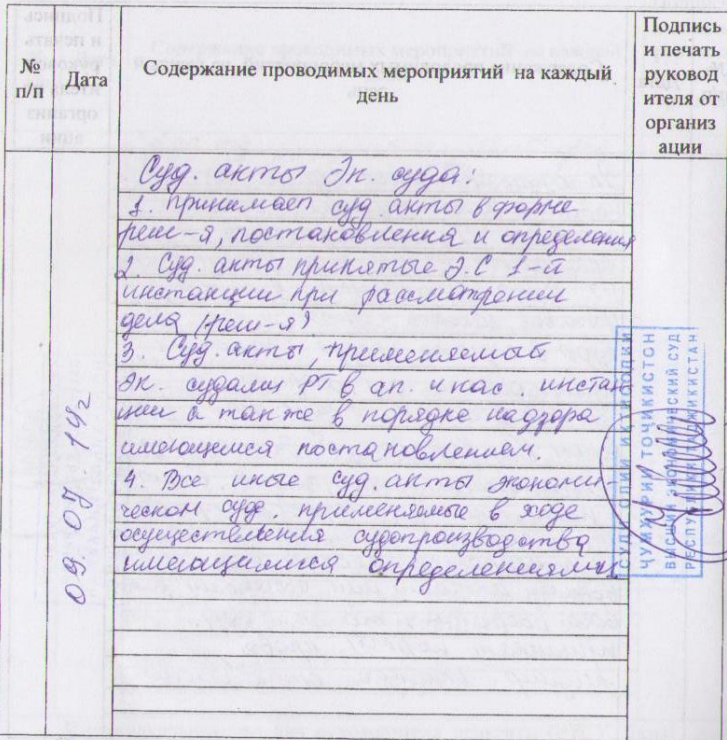 № п/п
Дата
Содержание проводимых мероприятий на каждый
день
Подпись
и печать
руковод
ителя от
организ
ации
09. 07. 14г
Суд. акты Эк. суда:
1. принимает суд. акты в форме
реш-я, постановления и определения
2. Суд. акты принятые Э.С 1-й
инстанции при рассмотрении
дела (реш-я)
3. Суд. акты, применяемый
Эк. судами РТ в ап. и кас. инстан
ции а также в порядке надзора
имеющемся постановлением.
4. Все иные суд. акты экономи-
ческом суде. применяемые в ходе
осуществления судопроизводства
имеющимися определениями
СУДИ ОЛИИ ИКТИСОДИИ
ҶУМҲУРИИ ТОҶИКИСТОН
ВЫСШИЙ ЭКОНОМИЧЕСКИЙ СУД
РЕСПУБЛИКИ ТАДЖИКИСТАН